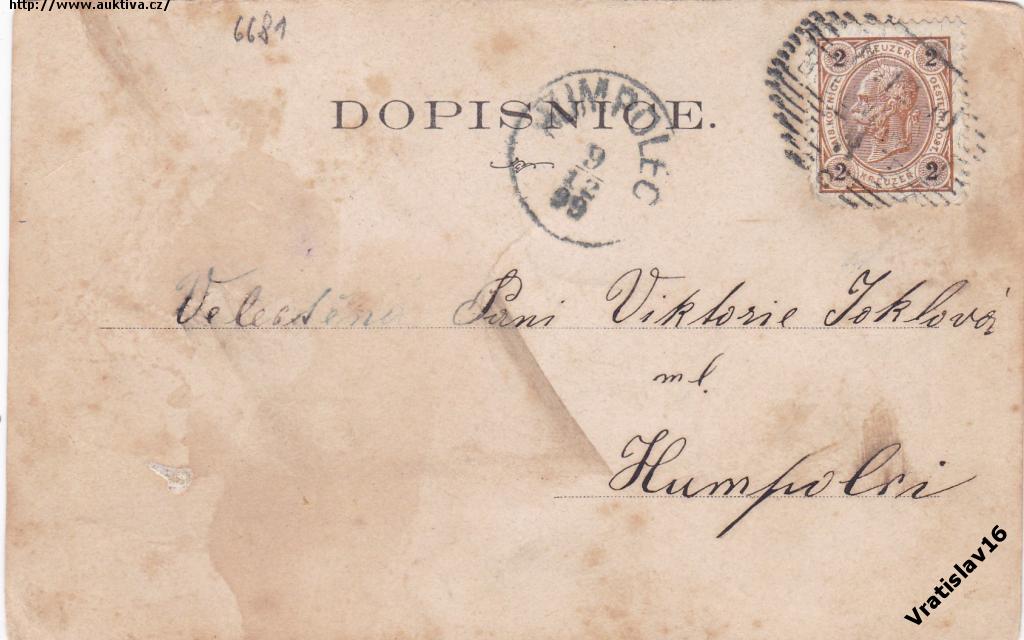 http://www.auktiva.cz/
6681
DOPISNICE.
HUMPOLEC
9
12
99
2 KREUZER 2
2 KREUZER 2
Velectěná Paní Viktorie Joklová
ml.
Humpolci
Vratislav16